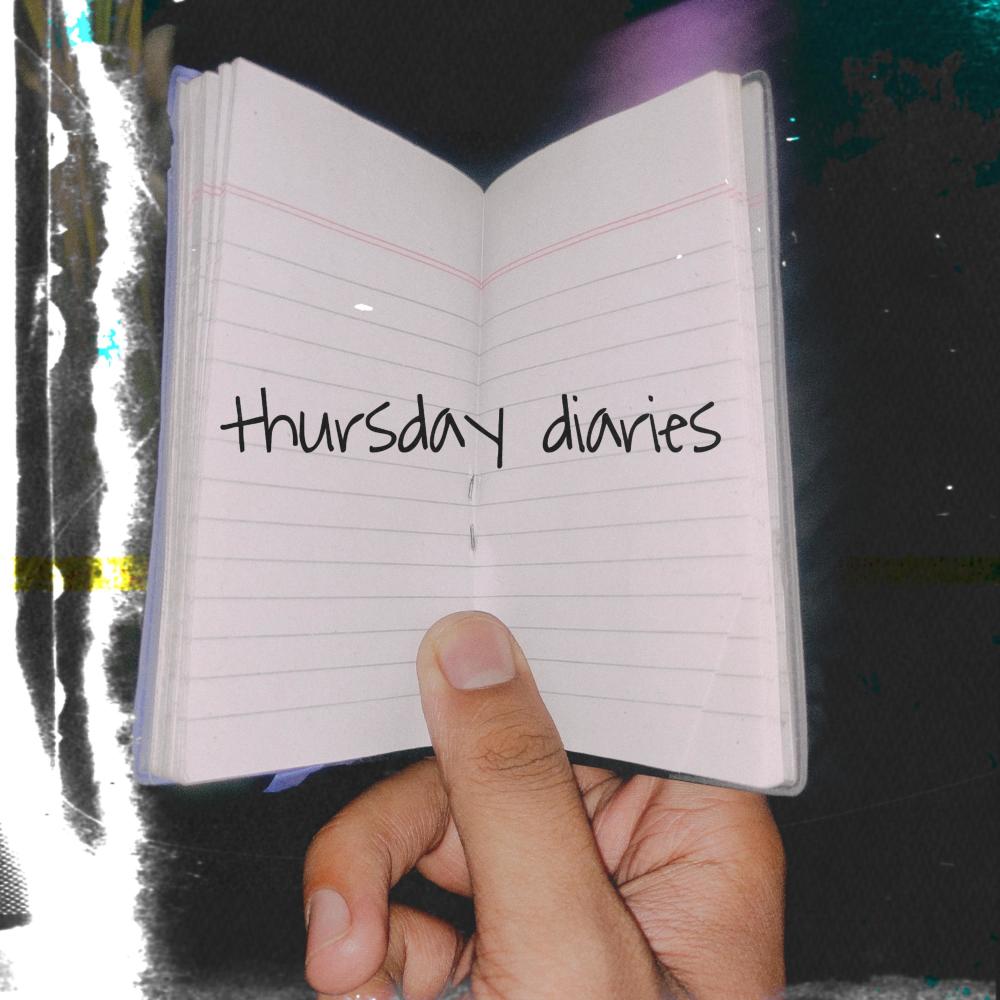 thursday diaries